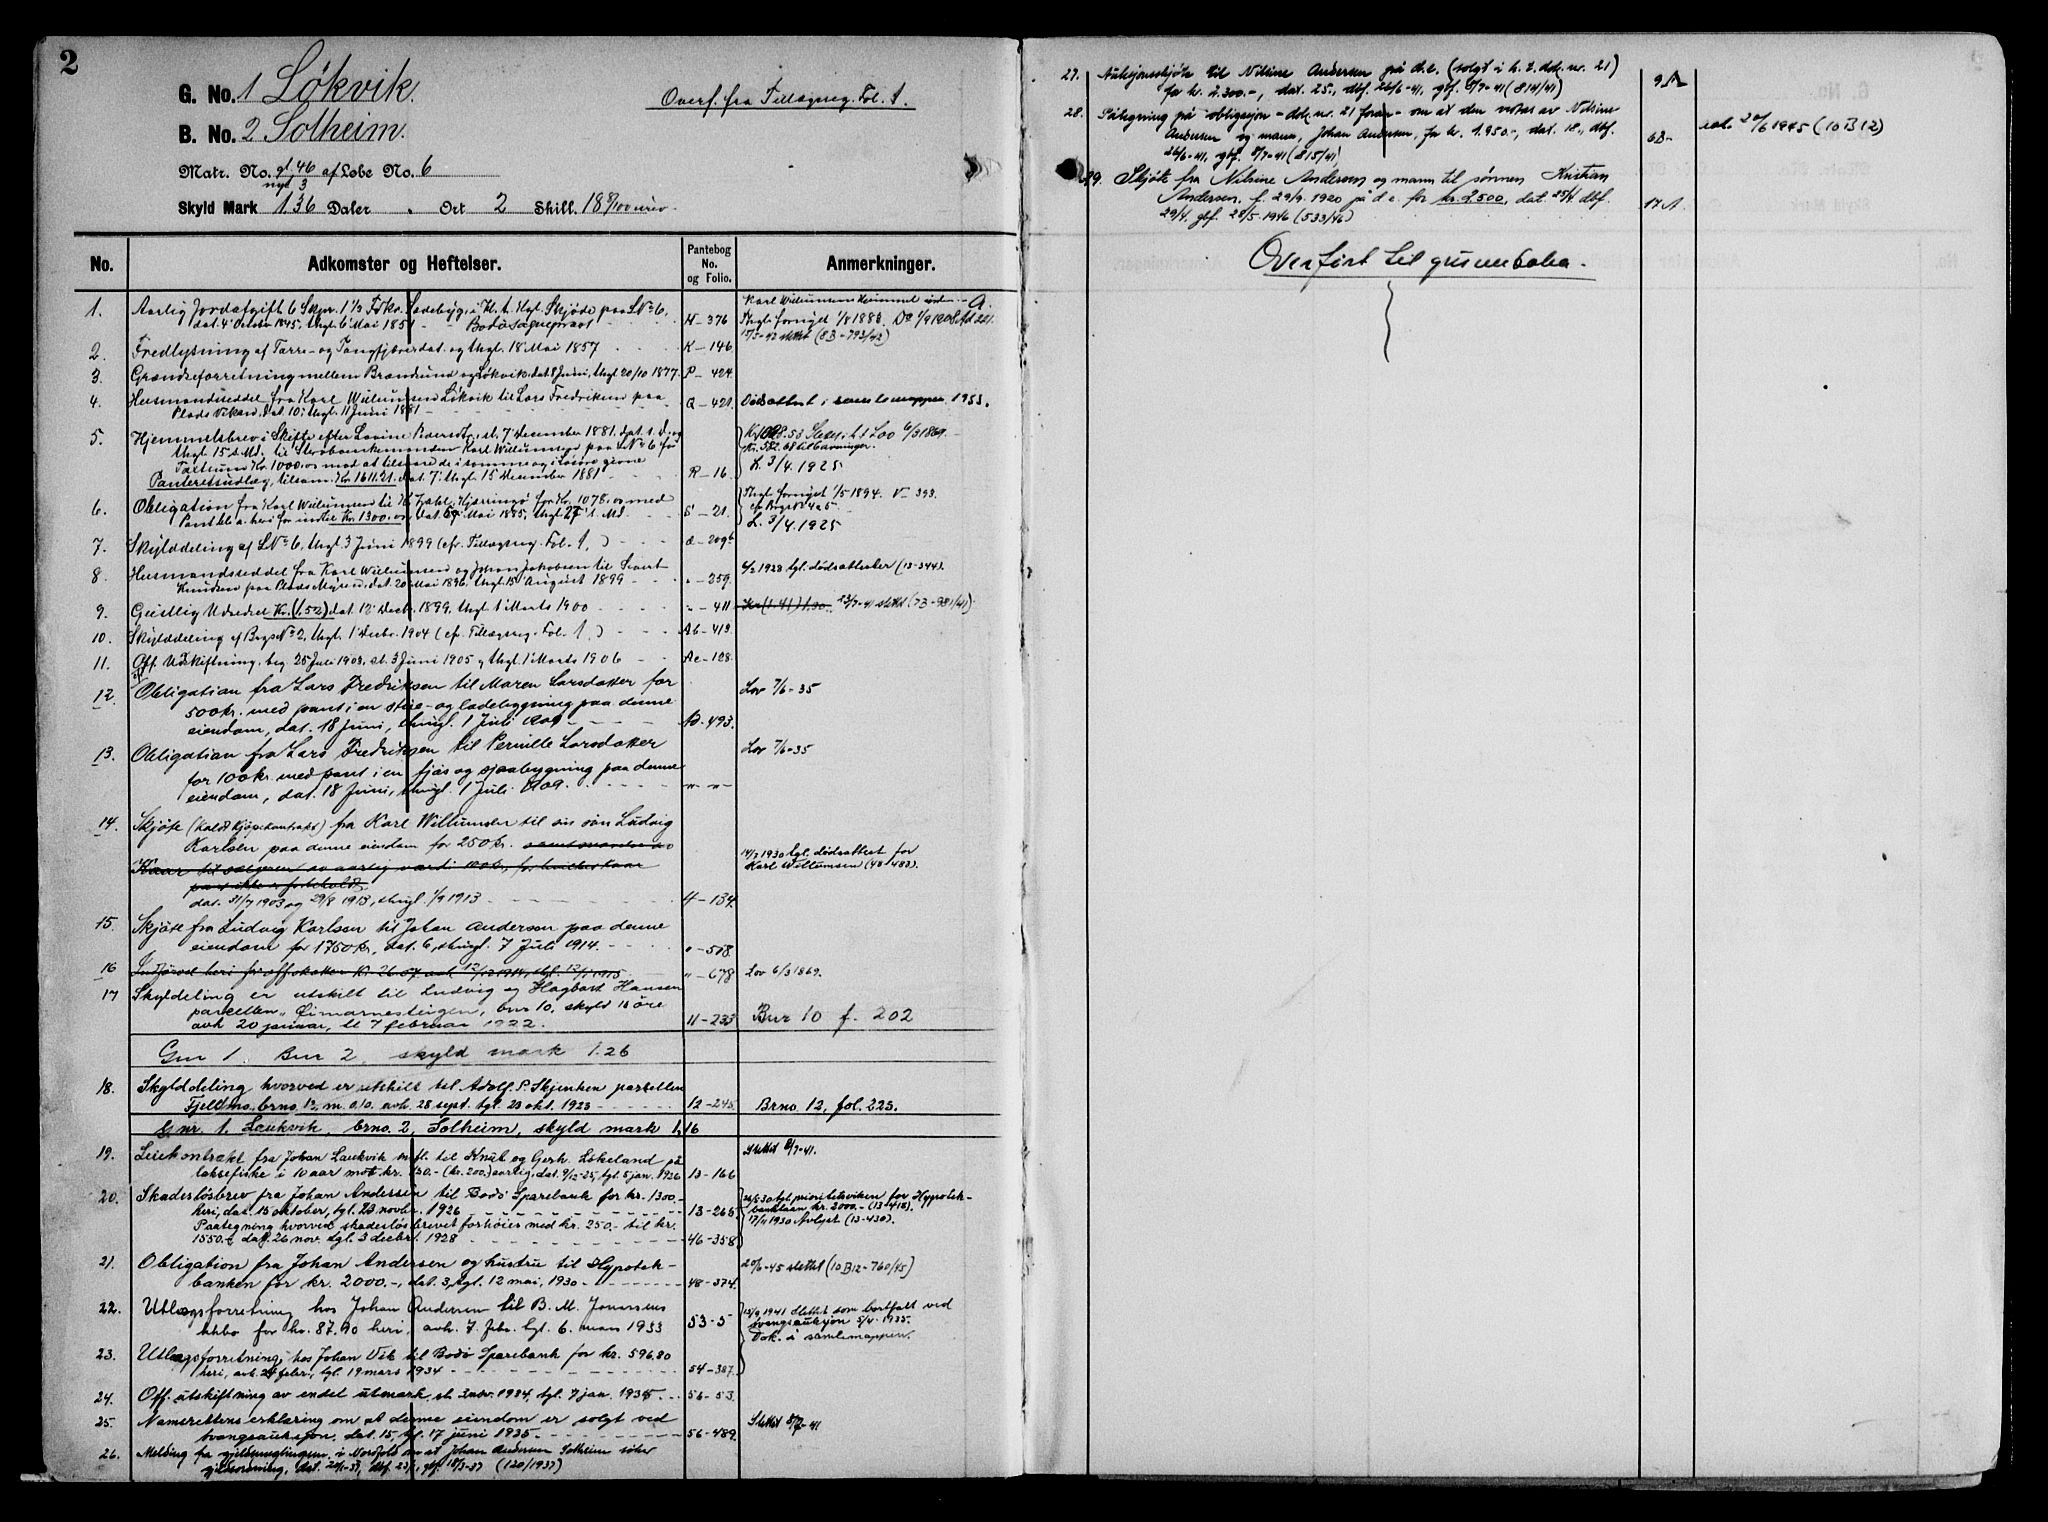 2
G. No. 1 Løkvik.
Overf. fra Tillægsreg. Fol. 1.
B. No. 2 Solheim.
Matr. No. gl 46 af Løbe No. 6
nye 3
Skyld Mark 1.36 Daler „ Ort 2 Skill. 18
No. Adkomster og Heftelser. Pantebog No. og Folio. Anmerkninger.
1. Aarlig Jordafgift 6 Skpr. 1 1/3 Fdkr. i H. t. thgl. Skjøde paa LNo 6,
dat. 4 October 1845, thgl. 6 Mai 1851 H-376
Thgl. fornyet 1/8 1888.
15/5-42 slettet (8B-793/42)
2. Fredlysning af Tarre- og Tangfjære dat. og thgl. 18 Mai 1857 K-146
3. Grændseforretning mellem Brændsund og Løkvik, dat. 8 Juni, thgl. 20/10 1877. P-424
4. Husmandsseddel fra Karl Willumsen Løkvik til Lars Fredriksen paa
Plads Viken, dat. 10, thgl. 11 Juni 1881 Q-421
Dødsattest i samlemappen 1953.
5. Hjemmelsbrev i Skifte efter Lovine st. 7 December 1881, dat. s. D. og
thgl. 15 s. Md. til Karl Willumsen paa LNo 6 for
Taxtsum Kr. 1000.00 mod at tilsvare de i samme
Panteretsudlæg, tilsam. Kr. 1611.21. dat. 7, thgl. 15 December 1881 R-16
6/3 1869.
L. 3/4. 1925
6. Obligation fra Karl Willumsen til Kjerringø for Kr. 1078.00 med
Pant bl. a. heri for indtil Kr. 1300.00, Mai 1885, thgl. 27 s. Md. S-21.
Thgl. fornyet 1/5 1894. V-393.
L. 3/4. 1925
7. Skylddeling af LNo 6, thgl. 3 Juni 1899 (cfr. Tillægsreg. Fol. 1,)
8. Husmandsseddel fra Karl Willumsen og Johan Jakobsen til Sivert
Knudsen paa Plads Myren, dat. 20 Mai 1896, thgl. 15 August 1899 „-259.
1928 tgl. dødsattester (13-344).
9. Geistlig Udredsel Kr. (1,52) dat. 12 Decbr. 1899, thgl. 1 Marts 1900 „-411
23/7-41 slettet (7B-981/41)
10. Skylddeling af Brgs No 2, thgl. 1 Decbr. 1904 (cfr. Tillægsreg. Fol. 1,) Ab-413
11. Off. Udskiftning, beg. 25 Juli 1903, st. 3 Juni 1905 og thgl. 1 Marts 1906 Ac-128
12. Obligation fra Lars Fredriksen til Maren Larsdatter for
500 kr. med pant i en stue- og ladebygning paa denne
eiendom, dat. 18 Juni, thingl. 1 Juli 1909 Ad-493.
Lov 7/6-35
13. Obligation fra Lars Fredriksen til Pernille Larsdatter
for 100 kr. med pant i en fjøs og sjaabygning paa denne
eiendom, dat. 18 Juni, thingl. 1 Juli 1909. „-„
Lov 7/6-35
14. Skjøte (kaldt kjøpekontrakt) fra Karl Willumsen til sin søn Ludvig
Karlsen paa denne eiendom for 250 kr.
Kaar til sælgeren av aarlig værdi 100 kr. for hvilket kaar
pant ikke er forbeholdt
dat. 31/7 1903 og 29/8 1913, thingl. 1/9 1913 4-134.
1930 tgl. dødsattest for
Karl Willumsen (48-483).
15. Skjøte fra Ludvig Karlsen til Johan Andersen paa denne
eiendom for 1750 kr., dat. 6, thingl. 7 Juli 1914. „-508.
16 „-678 Lov 6/3 1869.
17 Skyldeling er utskilt til Ludvig og Hagbart Hansen
parcellen „Øimarnestingen, bnr 10, skyld
avh 20 januar, tl 7 februar 1922. 11-233 Bnr 10 f. 202
Gnr 1. Bnr 2, skyld mark 1.26
18. Skylddeling hvorved er utskilt til Adolf P. Skjenken parcellen
Fjellmo, brno. 12, m. 0.10. avh. 28 sept. tgl. 23 okt. 1923 12-245. Brno. 12, fol. 223.
Gnr. 1. Laukvik, brno. 2, Solheim, skyld mark 1,16
19. Leiekontrakt fra Johan Laukvik m.fl. til Knut og Gerh. Løkeland på
laksefiske i 10 aar mot kr. (kr. 200.) aarlig, dat. 9/12-25, tgl. 5 jan. 1926 13-166
Slettet 8/7-41.
20. Skadesløsbrev fra Johan Andersen til Bodø Sparebank for kr. 1300.-
heri, dat. 15 oktober, tgl. 23 novbr. 1926 13-265.
Paategning hvorved skadesløsbrevet forhøies med kr. 250.- til kr.
1550.-, dat. 26 nov. tgl. 3 decbr. 1928 46-358
tgl. prioritetsviken for Hypotek-
banklaan kr. 2000.- (13-415).
17/11 1930 Avlyst (13-430).
21. Obligation fra Johan Andersen og hustru til Hypotek-
banken for kr. 2000.-, dat. 3, tgl. 12 mai, 1930 48-374.
20/6-45 slettet (10B12-760/45)
22. Utlægsforretning hos Johan Andersen til B. M. Jonassens
bo for kr. 87.90 heri, avh. 7 febr. tgl. 6. mars 1933 53-5
1941 slettet som bortfalt ved
tvangsauksjon 5/4 1935.
Dok. i samlemappen.
23. Utlægsforretning hos Johan Vik til Bodø Sparebank for kr. 596.80
heri, avh. 24 febr., tgl. 19 mars 1934 54-387
24. Off. utskiftning av endel utmark, sl. 3 nov. 1934, tgl. 7 jan. 1935 56-53.
25. Namsrettens erklæring om at denne eiendom er solgt ved
tvangsauksjon, dat. 15, tgl. 17 juni 1935 56-489.
Slettet 8/7-41
26. Melding fra gjeldsmeglingen i Nordfold om at Johan Andersen Solheim søker
gjeldsordning, (120/1937)
27. Auksjonsskjøte til Nilsine Andersen på d.e. (solgt i h. t. dok. nr. 21)
for kr. 2.300.-, dat. 25., dbf. 26/6-41, gbf. 8/7-41 (814/41) 9A
28. Påtegning på obligasjon - dok. nr. 21 foran - om at den vedtas av Nilsine
Andersen og mann, Johan Andersen, for kr. 1.950.-, dat. 18., dbf.
26/6-41, gbf. 8/7-41 (815/41) 6B-
20/6 1945 (10B12)
29. Skjøte fra Nilsine Andersen og mann til sønnen Kristian
Andersen, f. 29/9. 1920 på d e. for kr. 2500, dat. 25/4 dbf.
29/4. gbf. 28/5-1946 (533/46) 17A
Overført til grunnboka.